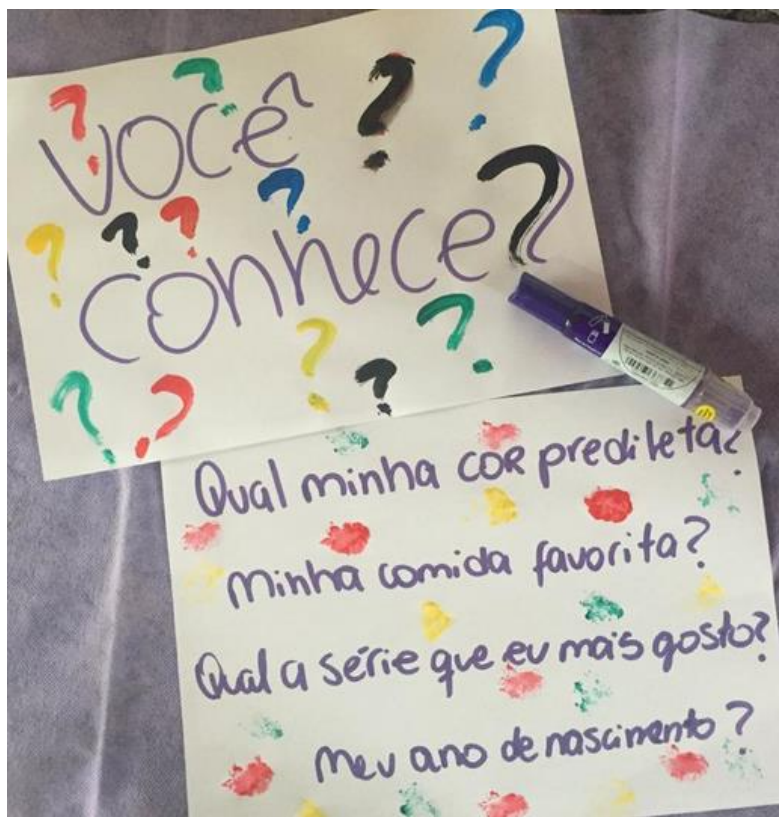 Você
conhece?
Qual minha cor predileta?
Minha comida favorita?
Qual a série que eu mais gosto?
Meu ano de nascimento?